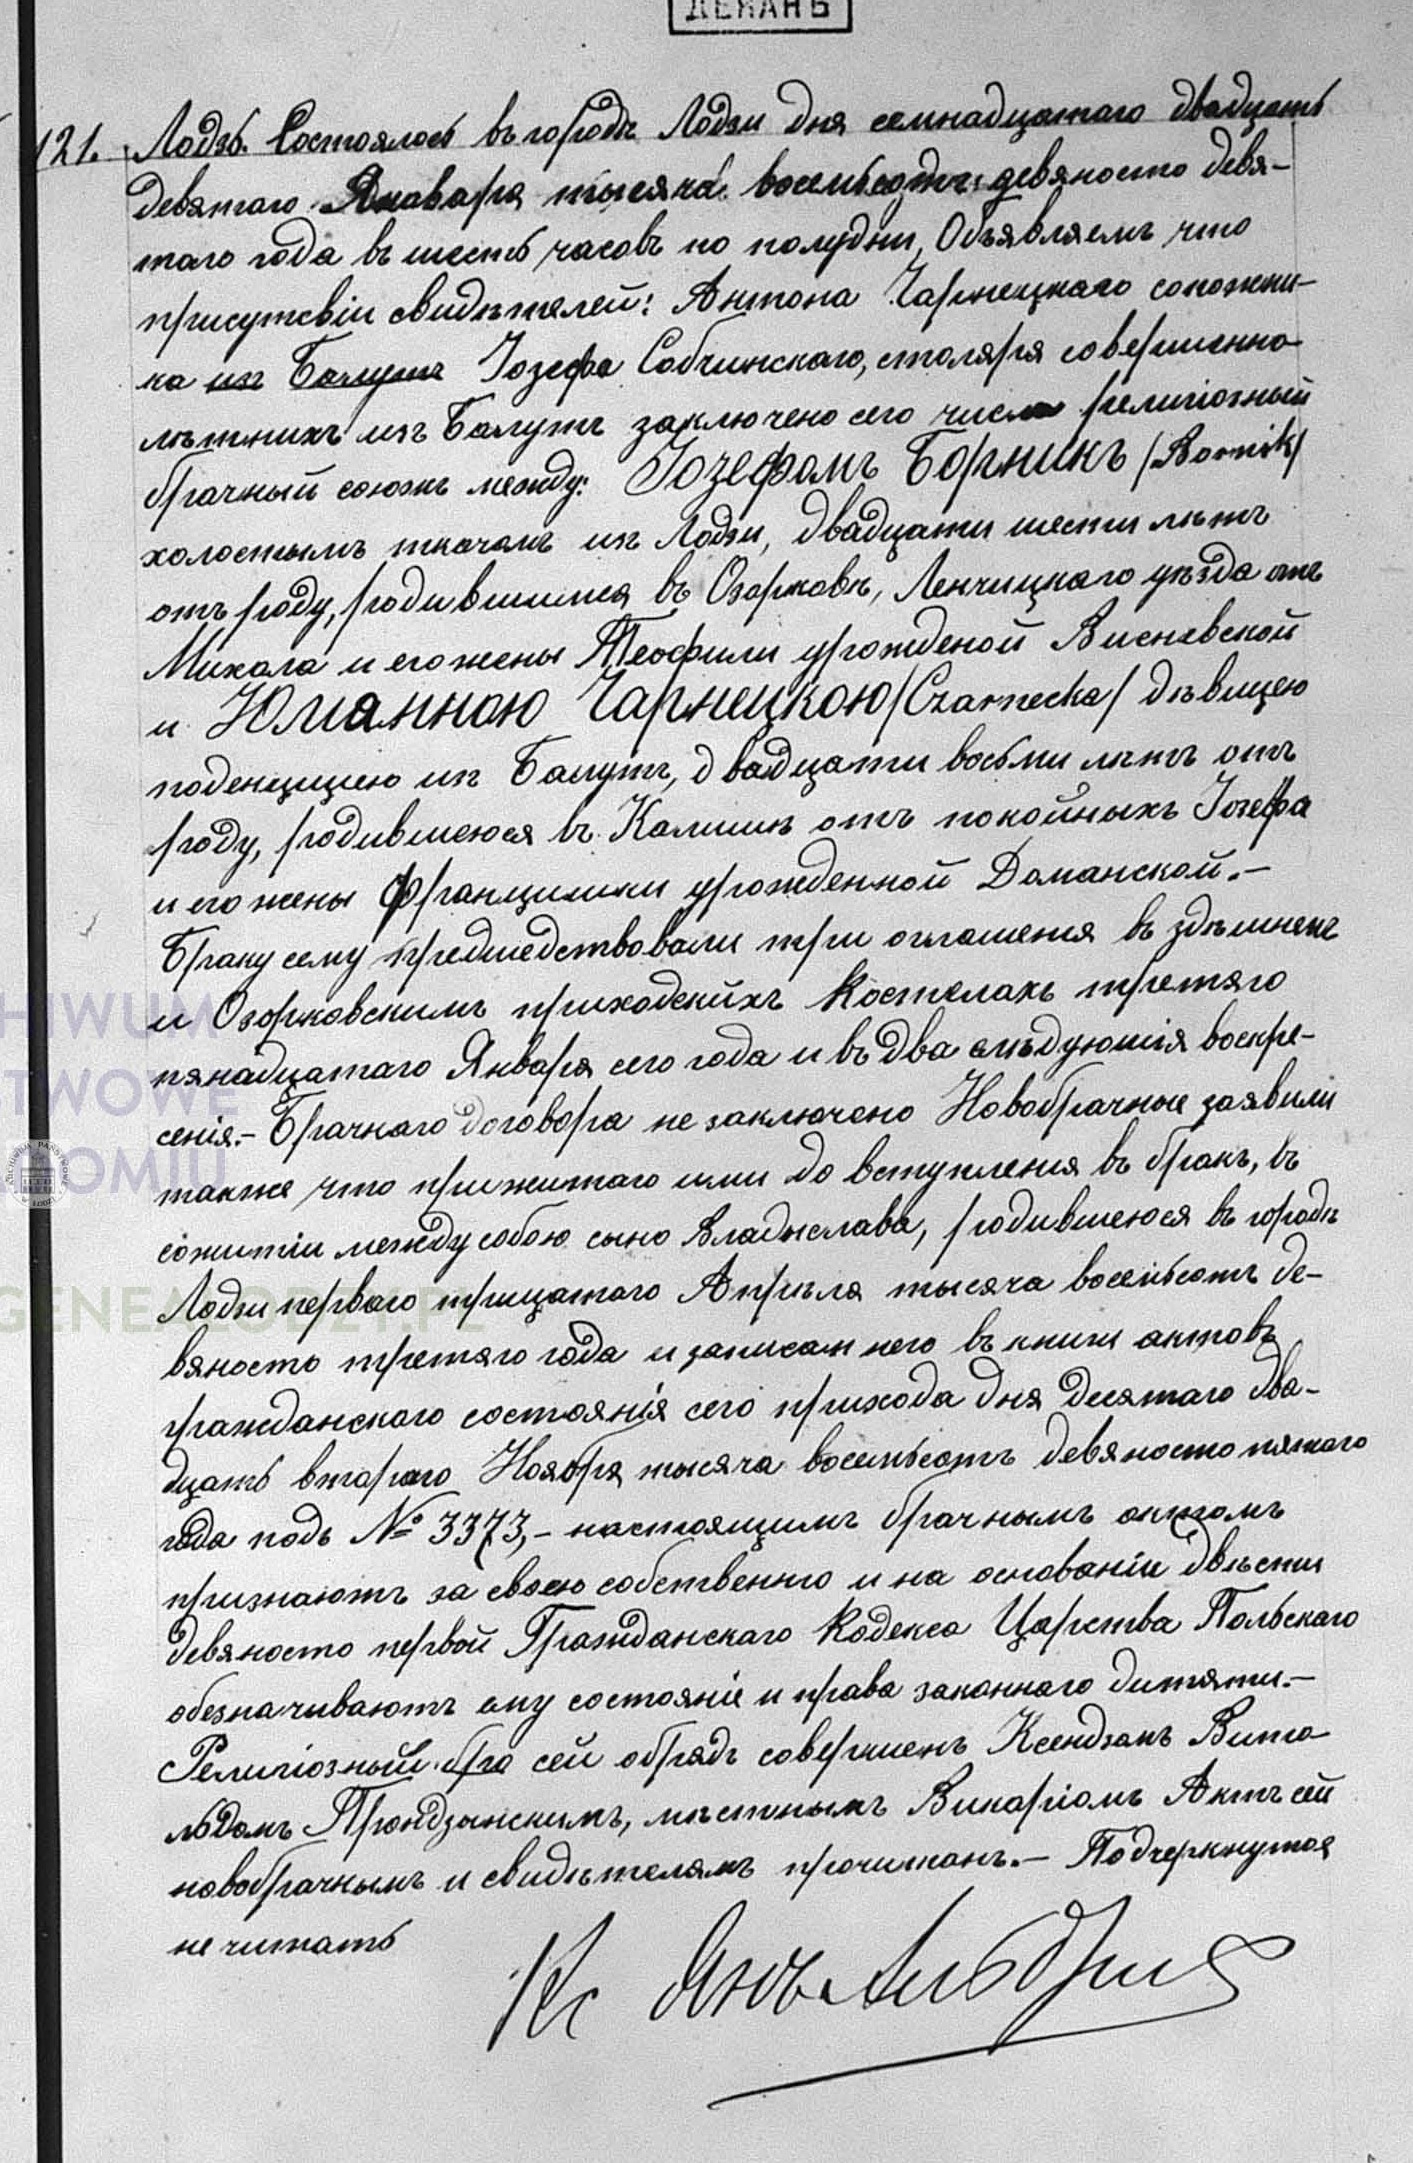 ДЕКАНЪ
121. Лодзь. Состоялось въ городѣ Лодзи дня семнадцатаго двадцать
девятаго Января тысяча восемьсотъ девяносто девя-
таго года въ шесть часовъ по полудни, Объявляемъ что
присутсвіи свидѣтелей: Антона Чарнецкаго
ка изъ Балутъ Іозефа Собчинскаго, столяря совершенно-
лѣтнихъ изъ Балутъ заключено сего числа религіозный
брачный союзъ между: Іозефомъ Борникъ /Bornik/
холостымъ ткачомъ изъ Лодзи, двадцати шести лѣтъ
отъ роду, родившимся въ Озорковѣ, Ленчицкаго уѣзда отъ
Михала и его жены Теофили урожденой Висневской
и Юліанною Чарнецкою /Czarnecka/ дѣвицею
поденщицею изъ Балутъ, двадцати восьми лѣтъ отъ
роду, родившеюся въ Калишѣ отъ покойныхъ Іозефа
и его жены Францишки урожденной Доманской.-
Браку сему предшедствовали три оглашения въ здѣшнемъ
и Озорковскимъ приходскихъ Костелахъ третяго
пянадцатаго Января сего года и въ два слѣдующія воскре-
сенія.- Брачнаго договора не заключено Новобрачные заявили
также что прижитаго ими до вступления въ бракъ, въ
сожитіи между собою сына Владыслава, родившеюся въ городѣ
Лодзи перваго трицатаго Апрѣля тысяча восемьсотъ де-
вяносто третяго года и записаннего въ книги актовъ
гражданскаго состоянія сего прихода дня Десятаго два-
дцать втораго Ноября тысяча восемьсотъ девяносто пятаго
года подъ № 3373,- настоящимъ брачнымъ актомъ
признаютъ за свою собственно и на основаніи двѣсти
девяносто первой Гражданскаго Кодекса Царства Польскаго
обезначиваютъ ему состояніе и права законнаго дитяти.-
Религіозный бра сей обрядъ совершенъ Ксендзомъ Вито-
льдомъ Прондзынскимъ, мѣстнымъ Викаріомъ Актъ сей
новобрачнымъ и свидѣтелямъ прочитанъ.- Подчеркнутоя
не читать
Кс Янъ
ARCHIWUM
PAŃSTWOWE
GENEALODZY.PL